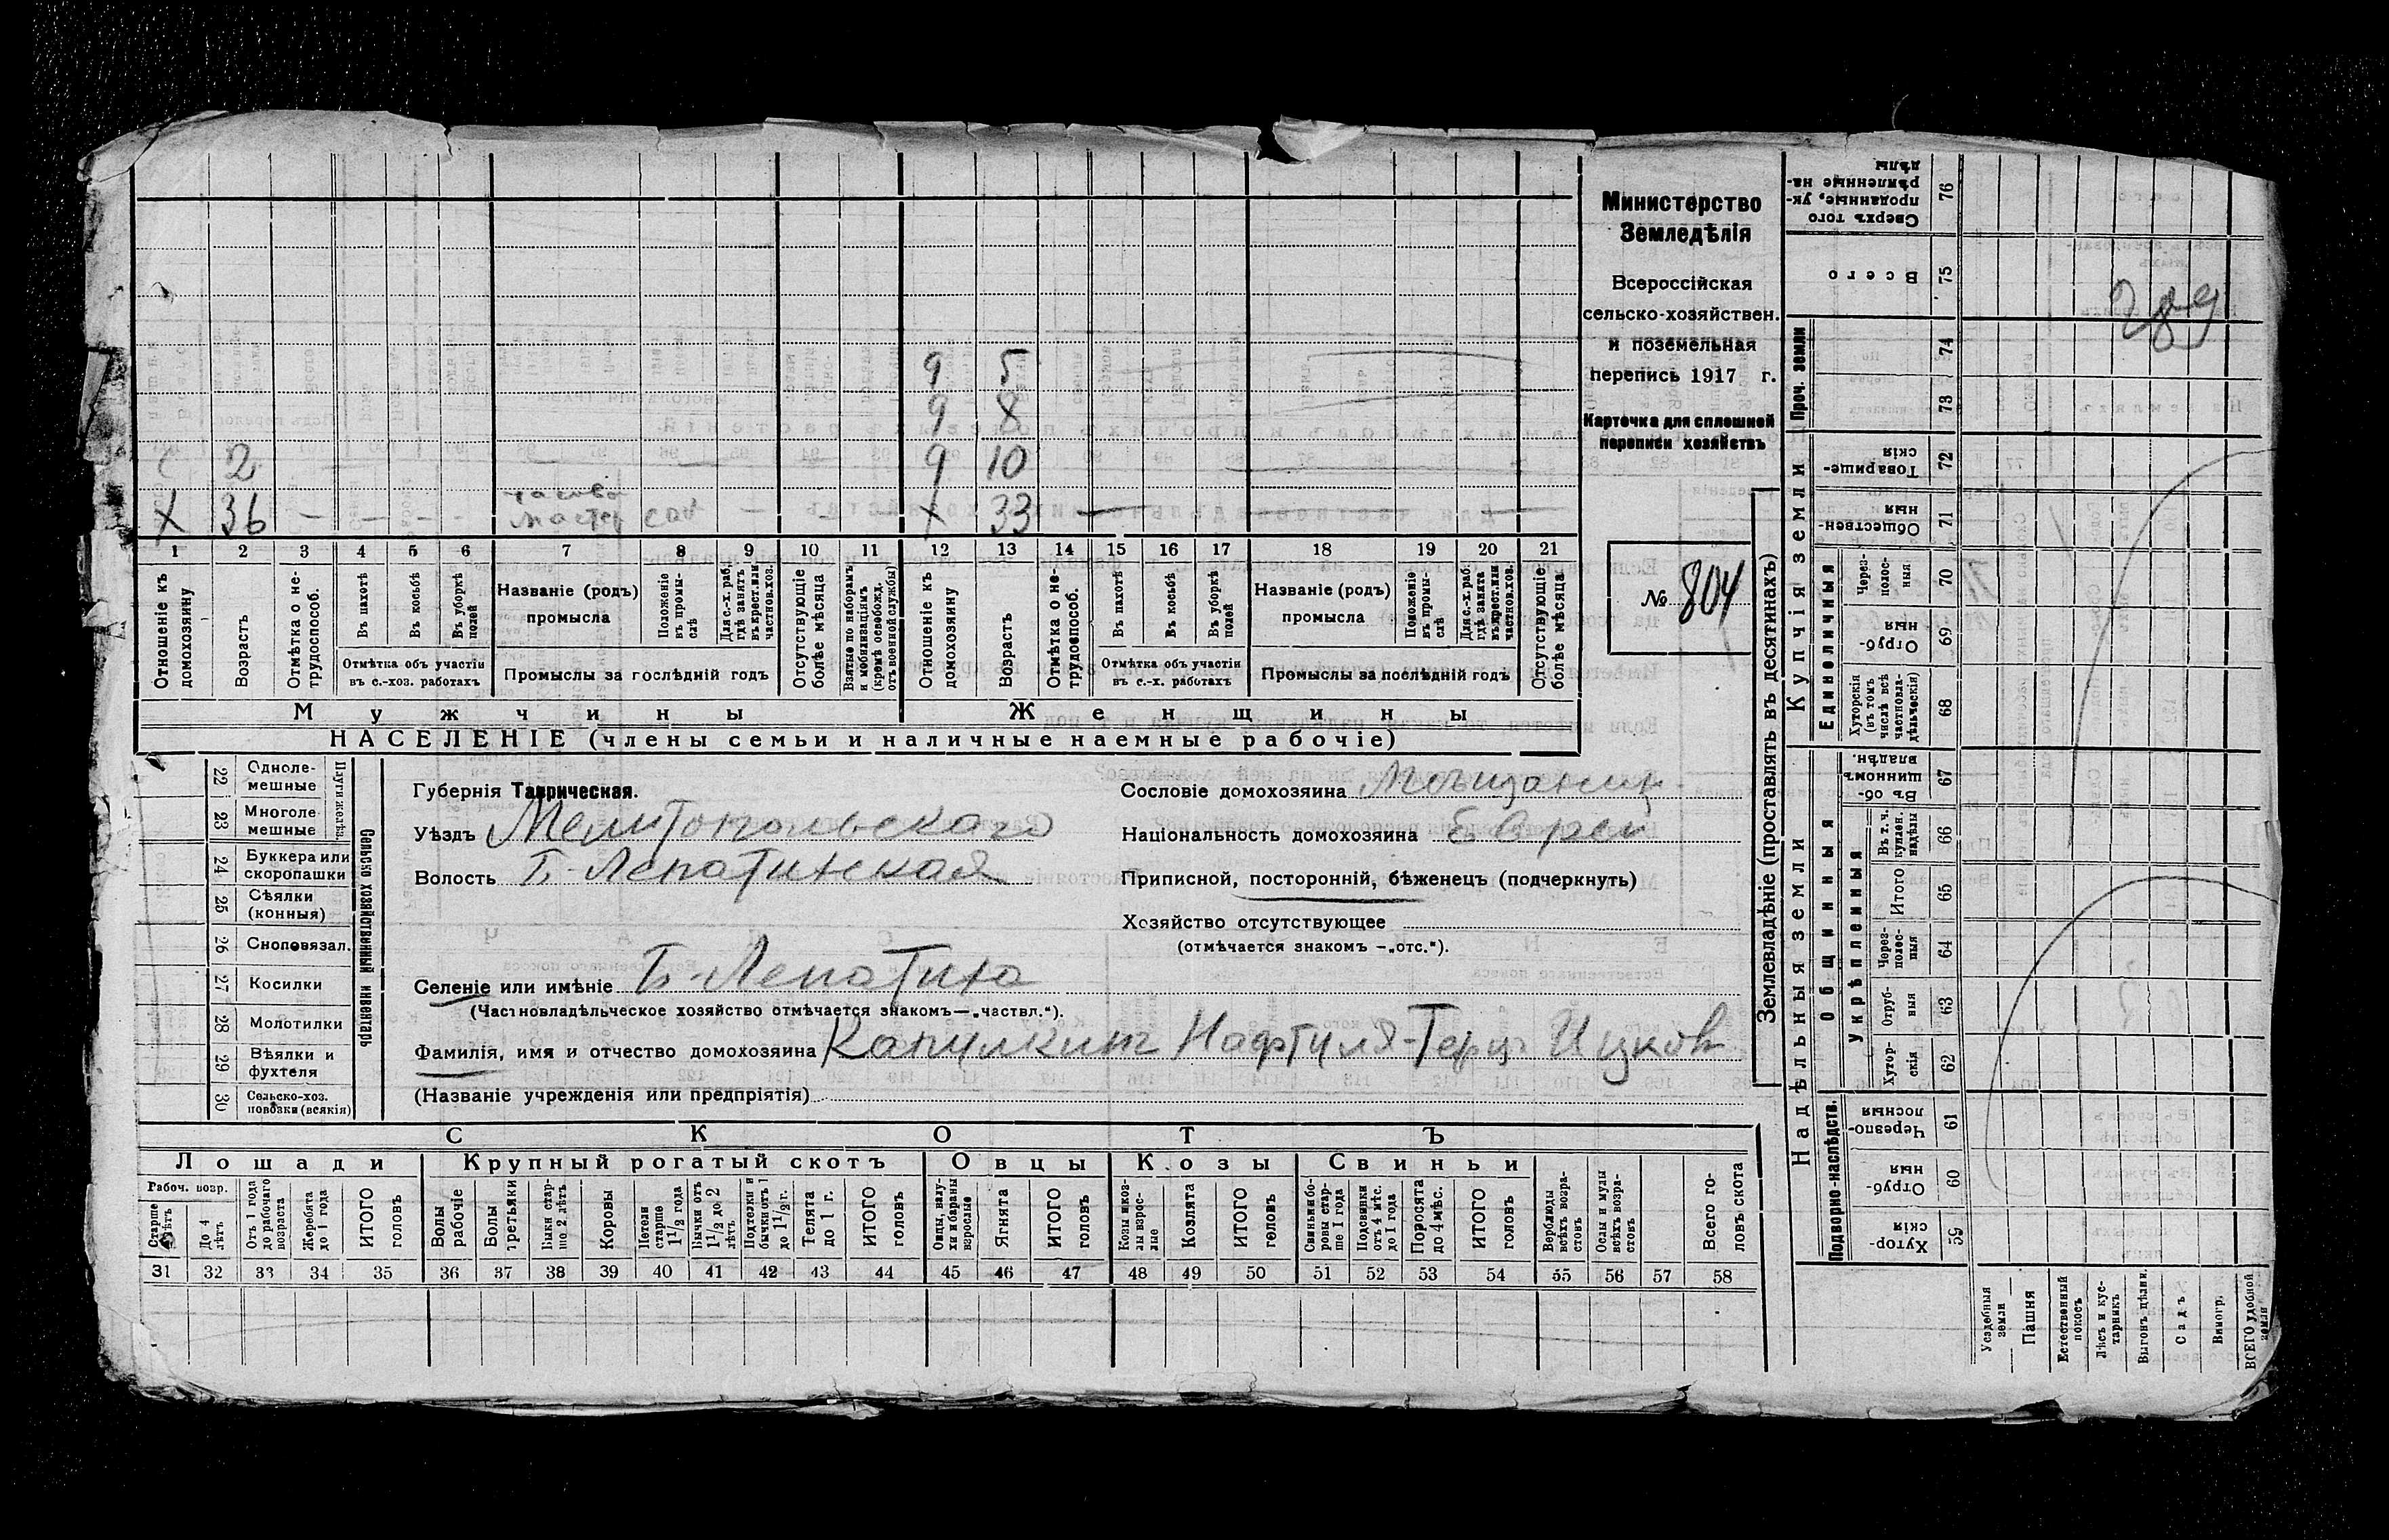 Министерство
Земледѣлія
Всероссійская
сельско-хозяйствен.
и поземельная
перепись 1917 г.
Карточка для сплошной
переписи хозяйствъ
№ 804
289
9 5
9 8
2 9 10
часовой
X 36 — — — - мастер — — — X 33 —
1 2 3 4 5 6 7 8 9 10 11 12 13 14 15 16 17 18 19 20 21
Отношеніе къ домохозяину
Возрастъ
Отмѣтка о не-трудоспособ.
Въ пахотѣ
Въ косьбѣ
Въ уборкѣ полей
Отмѣтка объ участіи
въ с.-хоз. работахъ
Названіе (родъ)
промысла
Положеніе въ промы-слѣ
Для с.-х. раб. гдѣ занятъ въ крест. или частнов. хоз.
Промыслы за послѣдній годъ
Отсутствующіе болѣе мѣсяца
Взятые по наборамъ и мобилизаціямъ (кромѣ освобожд. отъ военной службы)
Отношеніе къ домохозяину
Возрастъ
Отмѣтка о не-трудоспособ.
Въ пахотѣ
Въ косьбѣ
Въ уборкѣ полей
Отмѣтка объ участіи
въ с.-х. работахъ
Названіе (родъ)
промысла
Положеніе въ промы-слѣ
Для с.-х. раб. гдѣ занята въ крест. или частнов. хоз.
Промыслы за послѣдній годъ
Отсутствующіе болѣе мѣсяца
Мужчины Женщины
НАСЕЛЕНІЕ (члены семьи и наличные наемные рабочіе)
Сельско хозяйственный инвентарь
22 Одноле-мешные
23 Многоле-мешные
24 Буккера или скоропашки
25 Сѣялки (конныя)
26 Сноповязал.
27 Косилки
28 Молотилки
29 Вѣялки и фухтеля
30 Сельско-хоз. повозки (всякія)
Губернія Таврическая.
Уѣздъ Мелитопольскаго
Волость Б.-Лепатихская
Селеніе или имѣніе Б-Лепатиха
(Частновладѣльческое хозяйство отмѣчается знакомъ—„частвл.“).
Фамилія, имя и отчество домохозяина Капилкин Нафтуля-Герц Ицков
(Названіе учрежденія или предпріятія)
Сословіе домохозяина Мѣщанин
Національность домохозяина Еврей
Приписной, посторонній, бѣженецъ (подчеркнуть)
Хозяйство отсутствующее
(отмѣчается знакомъ —„отс.“).
СКОТЪ
Лошади Крупный рогатый скотъ Овцы Козы Свиньи
Рабоч. возр.
Старше 4 лѣтъ
До 4 лѣтъ
Отъ 1 года до рабочаго возраста
Жеребята до 1 года
ИТОГО головъ
Волы рабочіе
Волы третьяки
Быки стар-ше 2 лѣтъ
Коровы
Нетели старше 1½ года
Бычки отъ 1½ до 2 лѣтъ
Подтелки и бычки отъ 1 до 1½ г.
Телята до 1 г.
ИТОГО головъ
Овцы, валу-хи и бараны взрослые
Ягнята
ИТОГО головъ
Козы и коз-лы взрос-лые
Козлята
ИТОГО головъ
Свиньи и бо-ровы стар-ше 1 года
Подсвинки отъ 4 мѣс. до 1 года
Поросята до 4 мѣс.
ИТОГО головъ
Верблюды всѣхъ возра-стовъ
Ослы и мулы всѣхъ возра-стовъ
Всего го-ловъ скота
31 32 33 34 35 36 37 38 39 40 41 42 43 44 45 46 47 48 49 50 51 52 53 54 55 56 57 58
Землевладѣніе (проставлять въ десятинахъ)
Купчія земли
Надѣльныя земли
Сверхъ того проданные, ук-рѣпленные на-дѣлы 76
Всего 75
Проч. земли 74
73
Товарище-скія 72
Обществен-ныя 71
Единоличныя
Через-полос-ныя 70
Отруб-ныя 69
Хуторскія (въ томъ числѣ всѣ частновла-дѣльческія) 68
Общинныя
Въ об-щинномъ владѣн. 67
Укрѣпленныя
Въ т. ч. куплен. надѣлы 66
Итого 65
Через-полос-ныя 64
Отруб-ныя 63
Хутор-скія 62
Подворно-наслѣдств.
Черезпо-лосныя 61
Отруб-ныя 60
Хутор-скія 59
Усадебныя земли
Пашня
Естественный покосъ
Лѣсъ и кус-тарникъ
Выгонъ, цѣлин.
Садъ
Виногр.
ВСЕГО удобной земли